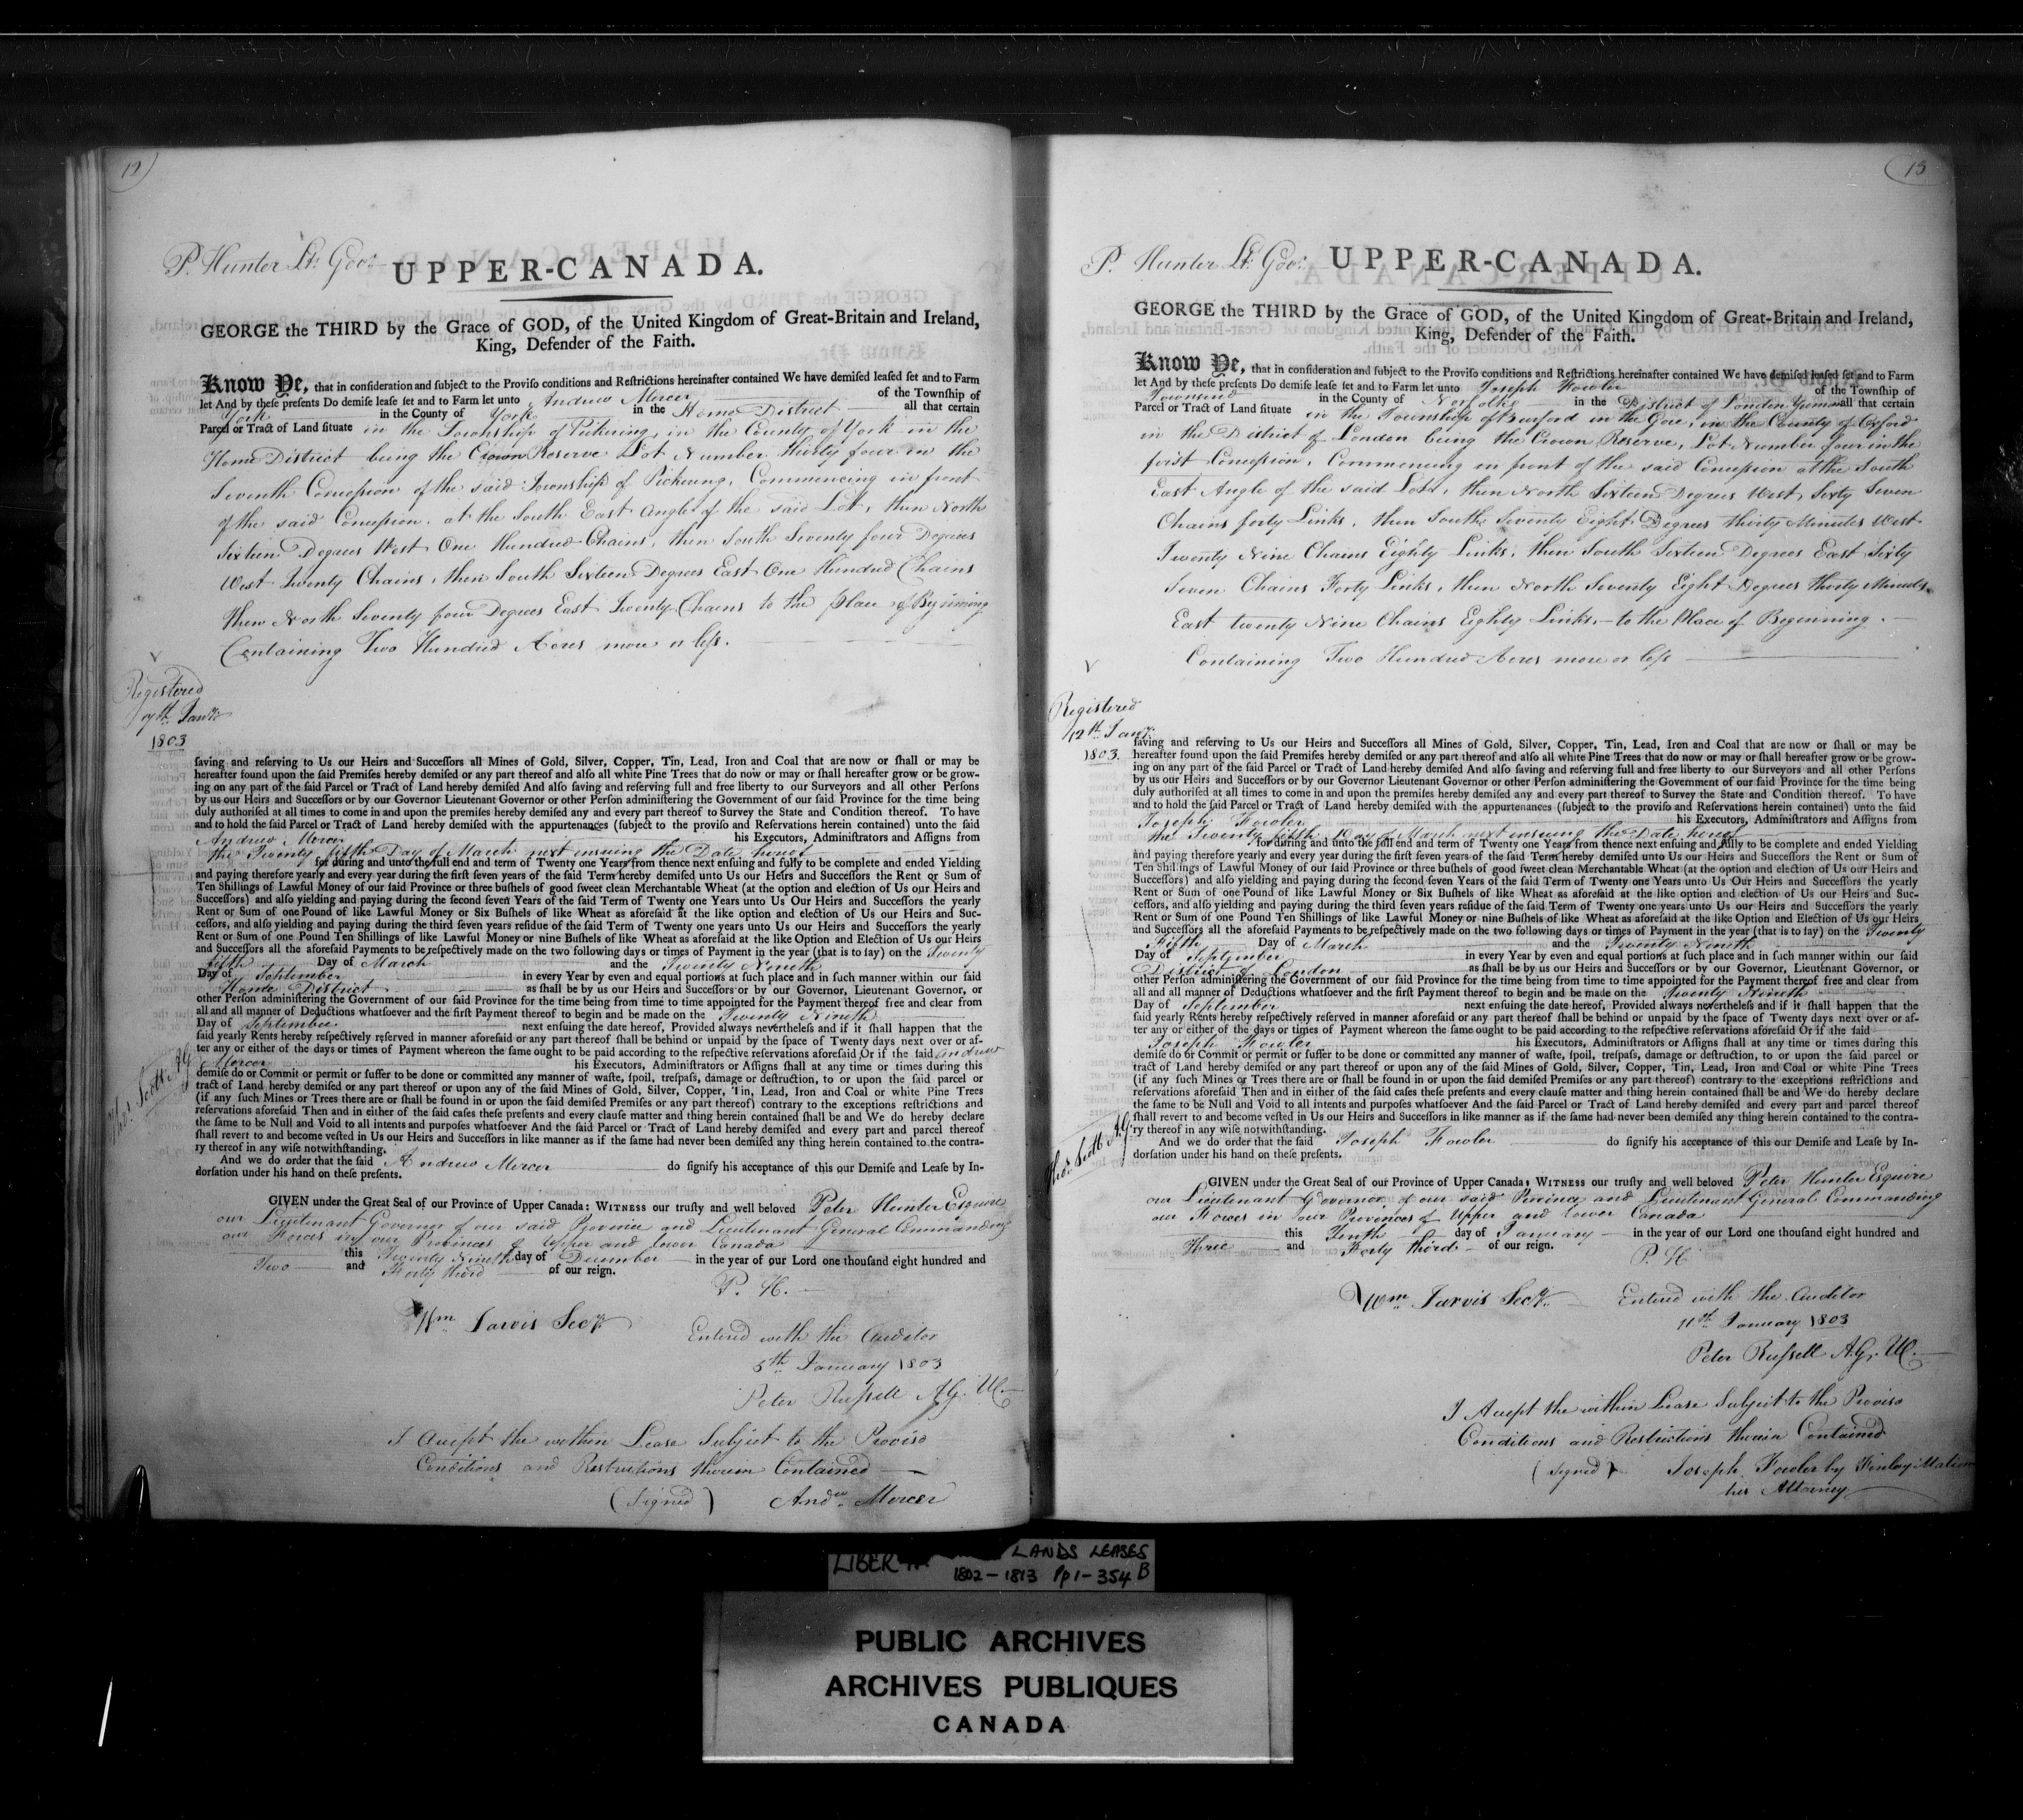 12
P. Hunter Lt. Govr. UPPER-CANADA.
GEORGE the THIRD by the Grace of GOD, of the United Kingdom of Great-Britain and Ireland,
King, Defender of the Faith.
Know Ye, that in conſideration and subject to the Proviſo conditions and Reſtrictions hereinafter contained We have demiſed leaſed ſet and to Farm
let And by theſe preſents Do demiſe leaſe ſet and to Farm let unto Andrew Mercer of the Townſhip of
York in the County of York in the Home District all that certain
Parcel or Tract of Land ſituate in the Township of Pickering, in the County of York in the
Home District being the Crown Reserve Lot Number thirty four in the
Seventh Concession of the said Township of Pickering, Commencing in front
of the said Concession, at the South East Angle of the said Lott, then North
Sixteen Degrees West One Hundred Chains, then South Seventy four Degrees
West Twenty Chains, then South Sixteen Degrees East One Hundred Chains
then North Seventy four Degrees East Twenty Chains to the place of Beginning
Containing Two Hundred Acres more or less.
Registered
7th Jany.
1803
ſaving and reſerving to Us our Heirs and Succeſſors all Mines of Gold, Silver, Copper, Tin, Lead, Iron and Coal that are now or ſhall or may be
hereafter found upon the ſaid Premiſes hereby demiſed or any part thereof and alſo all white Pine Trees that do now or may or ſhall hereafter grow or be grow-
ing on any part of the ſaid Parcel or Tract of Land hereby demiſed And alſo ſaving and reſerving full and free liberty to our Surveyors and all other Perſons
by us our Heirs and Succeſſors or by our Governor Lieutenant Governor or other Perſon adminiſtering the Government of our ſaid Province for the time being
duly authoriſed at all times to come in and upon the premiſes hereby demiſed any and every part thereof to Survey the State and Condition thereof. To have
and to hold the ſaid Parcel or Tract of Land hereby demiſed with the appurtenances (ſubject to the proviſo and Reſervations herein contained) unto the ſaid
Andrew Mercer his Executors, Adminiſtrators and Aſſigns from
the Twenty fifth Day of March next ensuing the Date hereof
for during and unto the full end and term of Twenty one Years from thence next enſuing and fully to be complete and ended Yielding
and paying therefore yearly and every year during the firſt ſeven years of the ſaid Term hereby demiſed unto Us our Heirs and Succeſſors the Rent or Sum of
Ten Shillings of Lawful Money of our ſaid Province or three buſhels of good ſweet clean Merchantable Wheat (at the option and election of Us our Heirs and
Succeſſors) and alſo yielding and paying during the ſecond ſeven Years of the ſaid Term of Twenty one Years unto Us Our Heirs and Succeſſors the yearly
Rent or Sum of one Pound of like Lawful Money or Six Buſhels of like Wheat as aforeſaid at the like option and election of Us our Heirs and Suc-
ceſſors, and alſo yielding and paying during the third ſeven years reſidue of the ſaid Term of Twenty one years unto Us our Heirs and Succeſſors the yearly
Rent or Sum of one Pound Ten Shillings of like Lawful Money or nine Buſhels of like Wheat as aforeſaid at the like Option and Election of Us our Heirs
and Succeſſors all the aforeſaid Payments to be reſpectively made on the two following days or times of Payment in the year (that is to ſay) on the Twenty
fifth Day of March and the Twenty Nineth
Day of September in every Year by even and equal portions at ſuch place and in ſuch manner within our ſaid
Home District as ſhall be by us our Heirs and Succeſſors or by our Governor, Lieutenant Governor, or
other Perſon adminiſtering the Government of our ſaid Province for the time being from time to time appointed for the Payment thereof free and clear from
all and all manner of Deductions whatſoever and the firſt Payment thereof to begin and be made on the Twenty Nineth
Day of September next enſuing the date hereof, Provided always nevertheleſs and if it ſhall happen that the
ſaid yearly Rents hereby reſpectively reſerved in manner aforeſaid or any part thereof ſhall be behind or unpaid by the ſpace of Twenty days next over or af-
ter any or either of the days or times of Payment whereon the ſame ought to be paid according to the reſpective reſervations aforeſaid Or if the ſaid Andrew
Mercer his Executors, Adminiſtrators or Aſſigns ſhall at any time or times during this
demiſe do or Commit or permit or ſuffer to be done or committed any manner of waſte, ſpoil, treſpaſs, damage or deſtruction, to or upon the ſaid parcel or
tract of Land hereby demiſed or any part thereof or upon any of the ſaid Mines of Gold, Silver, Copper, Tin, Lead, Iron and Coal or white Pine Trees
(if any ſuch Mines or Trees there are or ſhall be found in or upon the ſaid demiſed Premiſes or any part thereof) contrary to the exceptions reſtrictions and
reſervations aforeſaid Then and in either of the ſaid caſes theſe preſents and every clauſe matter and thing herein contained ſhall be and We do hereby declare
the ſame to be Null and Void to all intents and purpoſes whatſoever And the ſaid Parcel or Tract of Land hereby demiſed and every part and parcel thereof
ſhall revert to and become veſted in Us our Heirs and Succeſſors in like manner as if the ſame had never been demiſed any thing herein contained to the contra-
ry thereof in any wiſe notwithſtanding.
Thos. Scott A.G.
And we do order that the ſaid Andrew Mercer do ſignify his acceptance of this our Demiſe and Leaſe by In-
dorſation under his hand on theſe preſents.
GIVEN under the Great Seal of our Province of Upper Canada: WITNESS our truſty and well beloved Peter Hunter Esquire
our Lieutenant Governor of our said Province and Lieutenant General Commanding
our Forces in our Provinces of Upper and lower Canada
this Twenty Nineth day of December in the year of our Lord one thouſand eight hundred and
Two and Forty third of our reign.
P. H.
Wm. Jarvis Secy.
Entered with the Auditor
5th January 1803
Peter Russell A.G. U.C.
I Accept the within Lease Subject to the Proviso
Conditions and Restrictions therein Contained
(Signed) Andw. Mercer
13
P. Hunter Lt. Govr. UPPER-CANADA.
GEORGE the THIRD by the Grace of GOD, of the United Kingdom of Great-Britain and Ireland,
King, Defender of the Faith.
Know Ye, that in conſideration and subject to the Proviſo conditions and Reſtrictions hereinafter contained We have demiſed leaſed ſet and to Farm
let And by theſe preſents Do demiſe leaſe ſet and to Farm let unto Joseph Fowler of the Townſhip of
Townsend in the County of Norfolk in the District of London Yeoman all that certain
Parcel or Tract of Land ſituate in the Township of Burford in the Gore, in the County of Oxford
in the District of London being the Crown Reserve, Lot Number four in the
first Concession, Commencing in front of the said Concession at the South
East Angle of the said Lott, then North Sixteen Degrees West Sixty Seven
Chains forty Links, then South Seventy Eight Degrees thirty Minutes West
Twenty Nine Chains Eighty Links, then South Sixteen Degrees East Sixty
Seven Chains Forty Links, then North Seventy Eight Degrees thirty Minutes
East twenty Nine Chains Eighty Links, to the Place of Beginning.
Containing Two Hundred Acres more or less
Registered
12th Jany.
1803
ſaving and reſerving to Us our Heirs and Succeſſors all Mines of Gold, Silver, Copper, Tin, Lead, Iron and Coal that are now or ſhall or may be
hereafter found upon the ſaid Premiſes hereby demiſed or any part thereof And alſo all white Pine Trees that do now or may or ſhall hereafter grow or be grow-
ing on any part of the ſaid Parcel or Tract of Land hereby demiſed And alſo ſaving and reſerving full and free liberty to our Surveyors and all other Perſons
by us our Heirs and Succeſſors or by our Governor Lieutenant Governor or other Perſon adminiſtering the Government of our ſaid Province for the time being
duly authoriſed at all times to come in and upon the premiſes hereby demiſed any and every part thereof to Survey the State and Condition thereof. To have
and to hold the ſaid Parcel or Tract of Land hereby demiſed with the appurtenances (ſubject to the proviſo and Reſervations herein contained) unto the ſaid
Joseph Fowler his Executors, Adminiſtrators and Aſſigns from
the Twenty fifth Day of March next ensuing the Date hereof
for during and unto the full end and term of Twenty one Years from thence next enſuing and fully to be complete and ended Yielding
and paying therefore yearly and every year during the firſt ſeven years of the ſaid Term hereby demiſed unto Us our Heirs and Succeſſors the Rent or Sum of
Ten Shillings of Lawful Money of our ſaid Province or three buſhels of good ſweet clean Merchantable Wheat (at the option and election of Us our Heirs and
Succeſſors) and alſo yielding and paying during the ſecond ſeven Years of the ſaid Term of Twenty one Years unto Us Our Heirs and Succeſſors the yearly
Rent or Sum of one Pound of like Lawful Money or Six Buſhels of like Wheat as aforeſaid at the like option and election of Us our Heirs and Suc-
ceſſors, and alſo yielding and paying during the third ſeven years reſidue of the ſaid Term of Twenty one years unto Us our Heirs and Succeſſors the yearly
Rent or Sum of one Pound Ten Shillings of like Lawful Money or nine Buſhels of like Wheat as aforeſaid at the like Option and Election of Us our Heirs
and Succeſſors all the aforeſaid Payments to be reſpectively made on the two following days or times of Payment in the year (that is to ſay) on the Twenty
Fifth Day of March and the Twenty Nineth
Day of September in every Year by even and equal portions at ſuch place and in ſuch manner within our ſaid
District of London as ſhall be by us our Heirs and Succeſſors or by our Governor, Lieutenant Governor, or
other Perſon adminiſtering the Government of our ſaid Province for the time being from time to time appointed for the Payment thereof free and clear from
all and all manner of Deductions whatſoever and the firſt Payment thereof to begin and be made on the Twenty Nineth
Day of September next enſuing the date hereof, Provided always nevertheleſs and if it ſhall happen that the
ſaid yearly Rents hereby reſpectively reſerved in manner aforeſaid or any part thereof ſhall be behind or unpaid by the ſpace of Twenty days next over or af-
ter any or either of the days or times of Payment whereon the ſame ought to be paid according to the reſpective reſervations aforeſaid Or if the ſaid
Joseph Fowler his Executors, Adminiſtrators or Aſſigns ſhall at any time or times during this
demiſe do or Commit or permit or ſuffer to be done or committed any manner of waſte, ſpoil, treſpaſs, damage or deſtruction, to or upon the ſaid parcel or
tract of Land hereby demiſed or any part thereof or upon any of the ſaid Mines of Gold, Silver, Copper, Tin, Lead, Iron and Coal or white Pine Trees
(if any ſuch Mines or Trees there are or ſhall be found in or upon the ſaid demiſed Premiſes or any part thereof) contrary to the exceptions reſtrictions and
reſervations aforeſaid Then and in either of the ſaid caſes theſe preſents and every clauſe matter and thing herein contained ſhall be and We do hereby declare
the ſame to be Null and Void to all intents and purpoſes whatſoever And the ſaid Parcel or Tract of Land hereby demiſed and every part and parcel thereof
ſhall revert to and become veſted in Us our Heirs and Succeſſors in like manner as if the ſame had never been demiſed any thing herein contained to the contra-
ry thereof in any wiſe notwithſtanding.
Thos. Scott A.G.
And we do order that the ſaid Joseph Fowler do ſignify his acceptance of this our Demiſe and Leaſe by In-
dorſation under his hand on theſe preſents.
GIVEN under the Great Seal of our Province of Upper Canada: WITNESS our truſty and well beloved Peter Hunter Esquire
our Lieutenant Governor of our said Province and Lieutenant General Commanding
our Forces in our Provinces of Upper and lower Canada
this Tenth day of January in the year of our Lord one thouſand eight hundred and
Three and Forty third of our reign.
P. H.
Wm. Jarvis Secy.
Entered with the Auditor
11th January 1803
Peter Russell A.G. U.C.
I Accept the within Lease Subject to the Proviso
Conditions and Restrictions therein Contained
(Signed) Joseph Fowler by Finlay
his Attorney
LIBER LANDS LEASES
1802-1813 Pp 1-354 B
PUBLIC ARCHIVES
ARCHIVES PUBLIQUES
CANADA